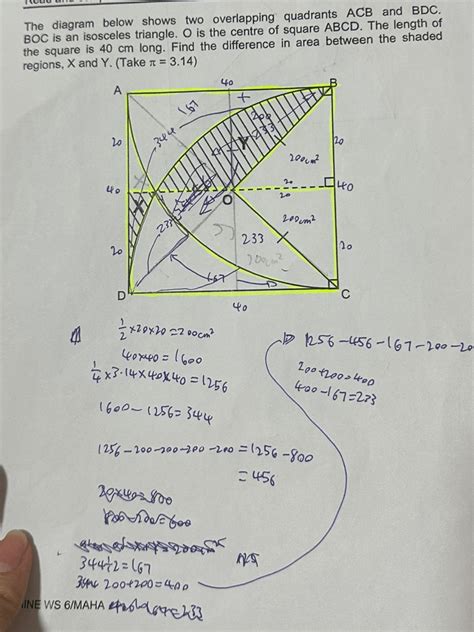 The diagram below shows two overlapping quadrants ACB and BDC.
BOC is an isosceles triangle. O is the centre of square ABCD. The length of
the square is 40 cm long. Find the difference in area between the shaded
regions, X and Y. (Take π = 3.14)
40
A
B
167
344
200
233
20
20
Y
200cm²
20
40
40
X
O
20
233
200cm²
20
233
20
200cm²
167
D
C
40
1/2 × 20 × 20 = 200cm²
40×40 = 1600
1/4 × 3.14 × 40 × 40 = 1256
1600 - 1256 = 344
1256 - 200 - 200 - 200 - 200 = 1256 - 800
= 456
20×40 = 800
344÷2 = 167
200 + 200 = 400
1256 - 456 - 167 - 200 - 20
200 + 200 = 400
400 - 167 = 233
INE WS 6/MAHA